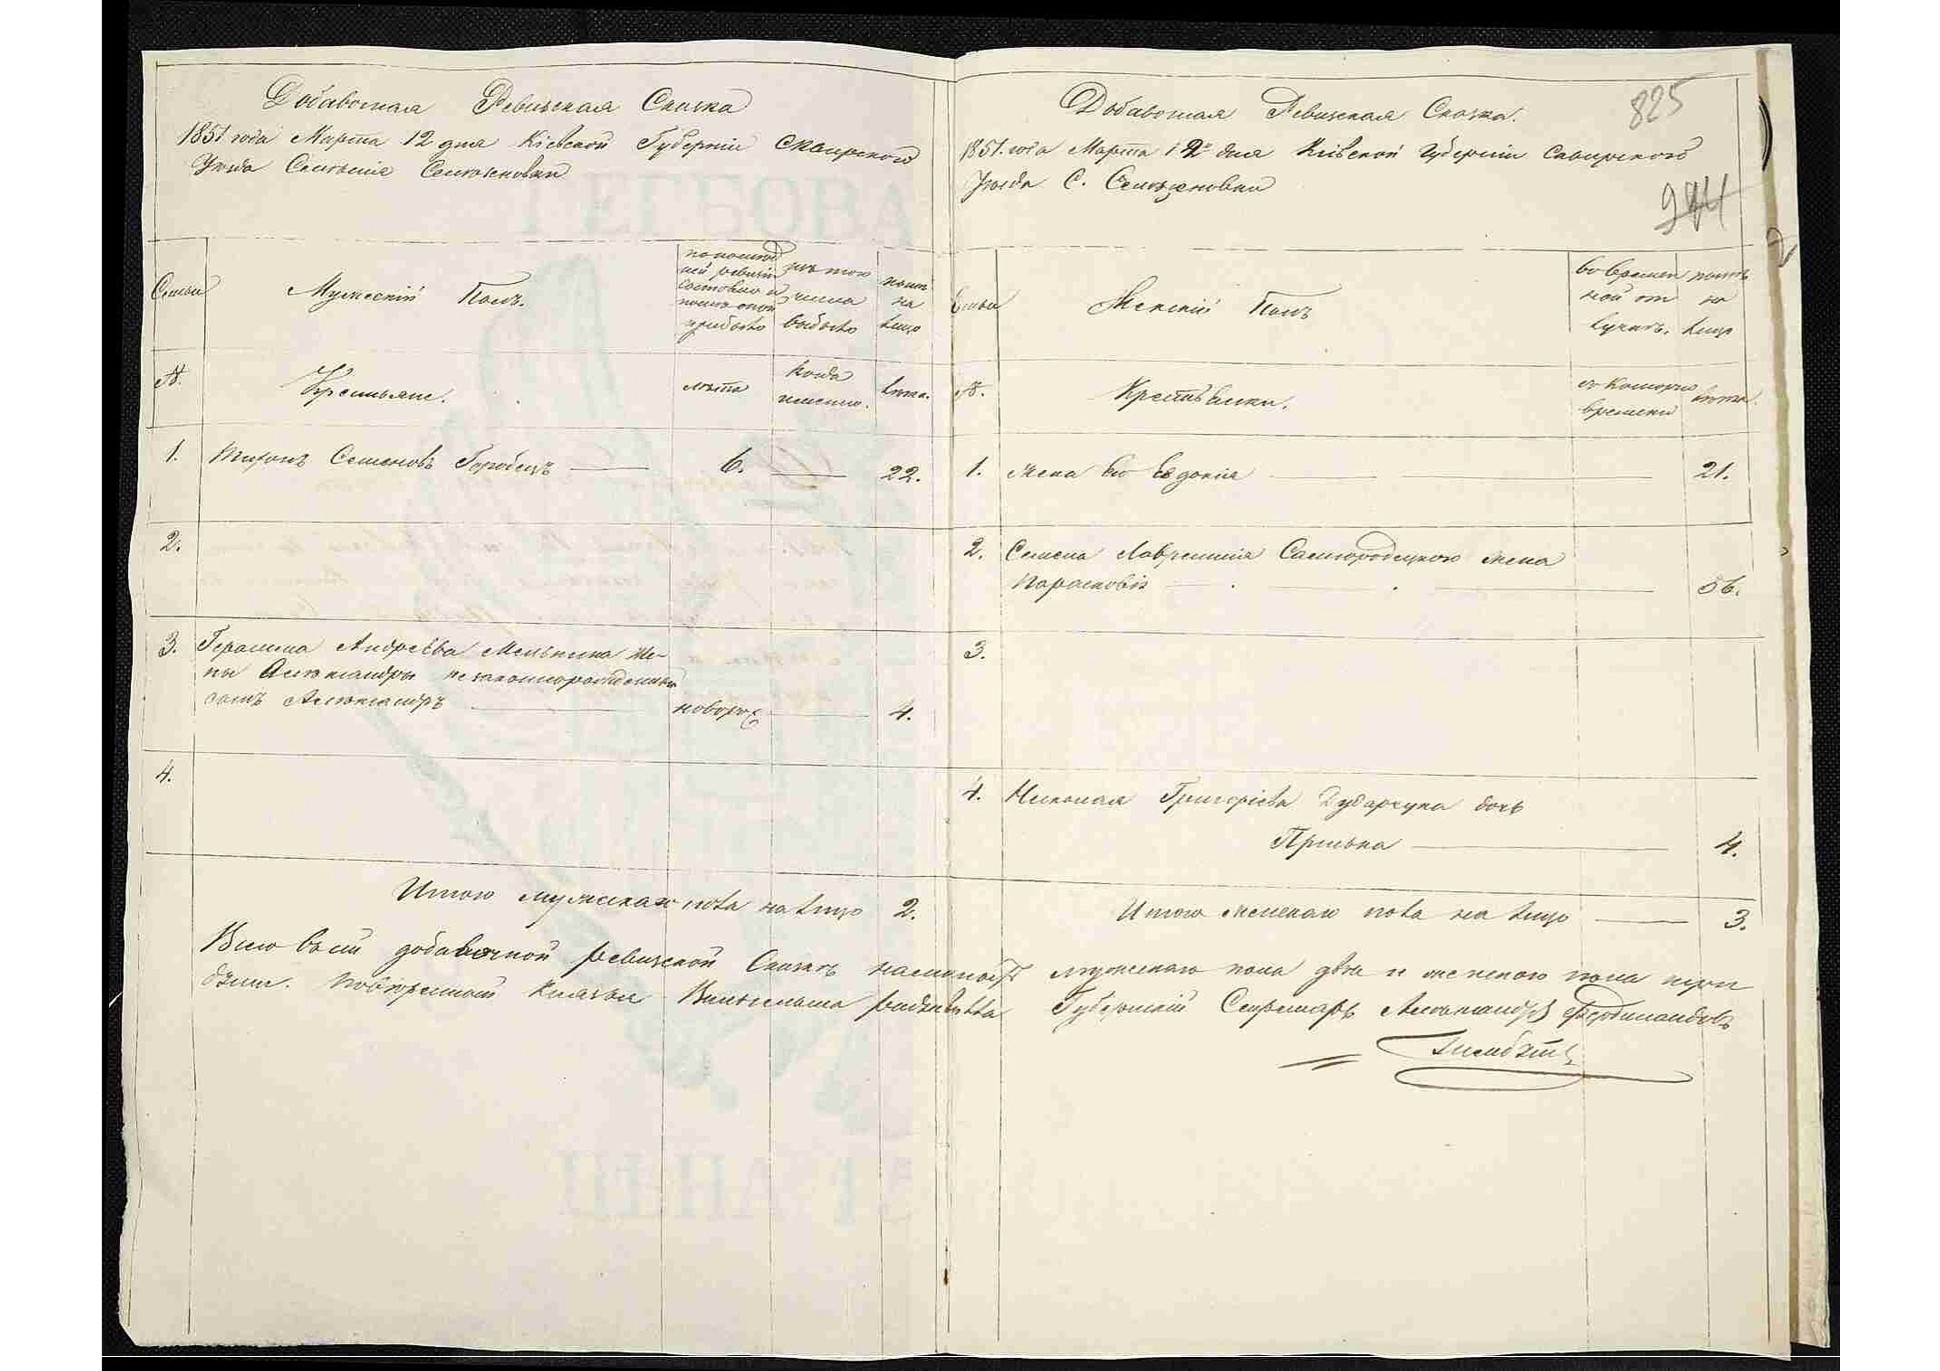 Добавочная Ревизская Сказка
1851 года Марта 12 дня Кіевской Губерніи Сквирского
Уезда Селенія
Семьи
Мужескій Полъ.
по послед
ней ревизіи
состояло и
после оной
прибыло
изъ того
числа
выбыло
ныне
на
лицо
№.
Крестьяне.
лета
когда
именно.
лета.
1. Миронъ Семеновъ Горобецъ 6. 22.
2.
3. Герасима Андреева Мельника же-
ны Александры незаконнорожденный
сынъ Александръ новорож 4.
4.
Итого мужеска пола на лицо 2.
Добавочная Ревизская Сказка.
825
1851 года Марта 12 дня Кіевской Губерніи Сквирского
Уезда С.
244
2
Семьи
Женскій Полъ
во времен
ной от
лучке.
ныне
на
лицо
№.
Крестьянки.
съ котораго
времени
лета.
1. Жена его Евдокія 21.
2. Семена Лаврентія Самгородецкого жена
Парасковія 56.
3.
4. Николая Григоріева дочь
Приська 4.
Итого женскаго пола на лицо 3.
Всего въ сей добавочной ревизской Сказке мужескаго пола два и женского пола три
души. Повѣренный Князья Вильгельма Радзивилла Губернскій Секретарь Александръ Фердинандовъ